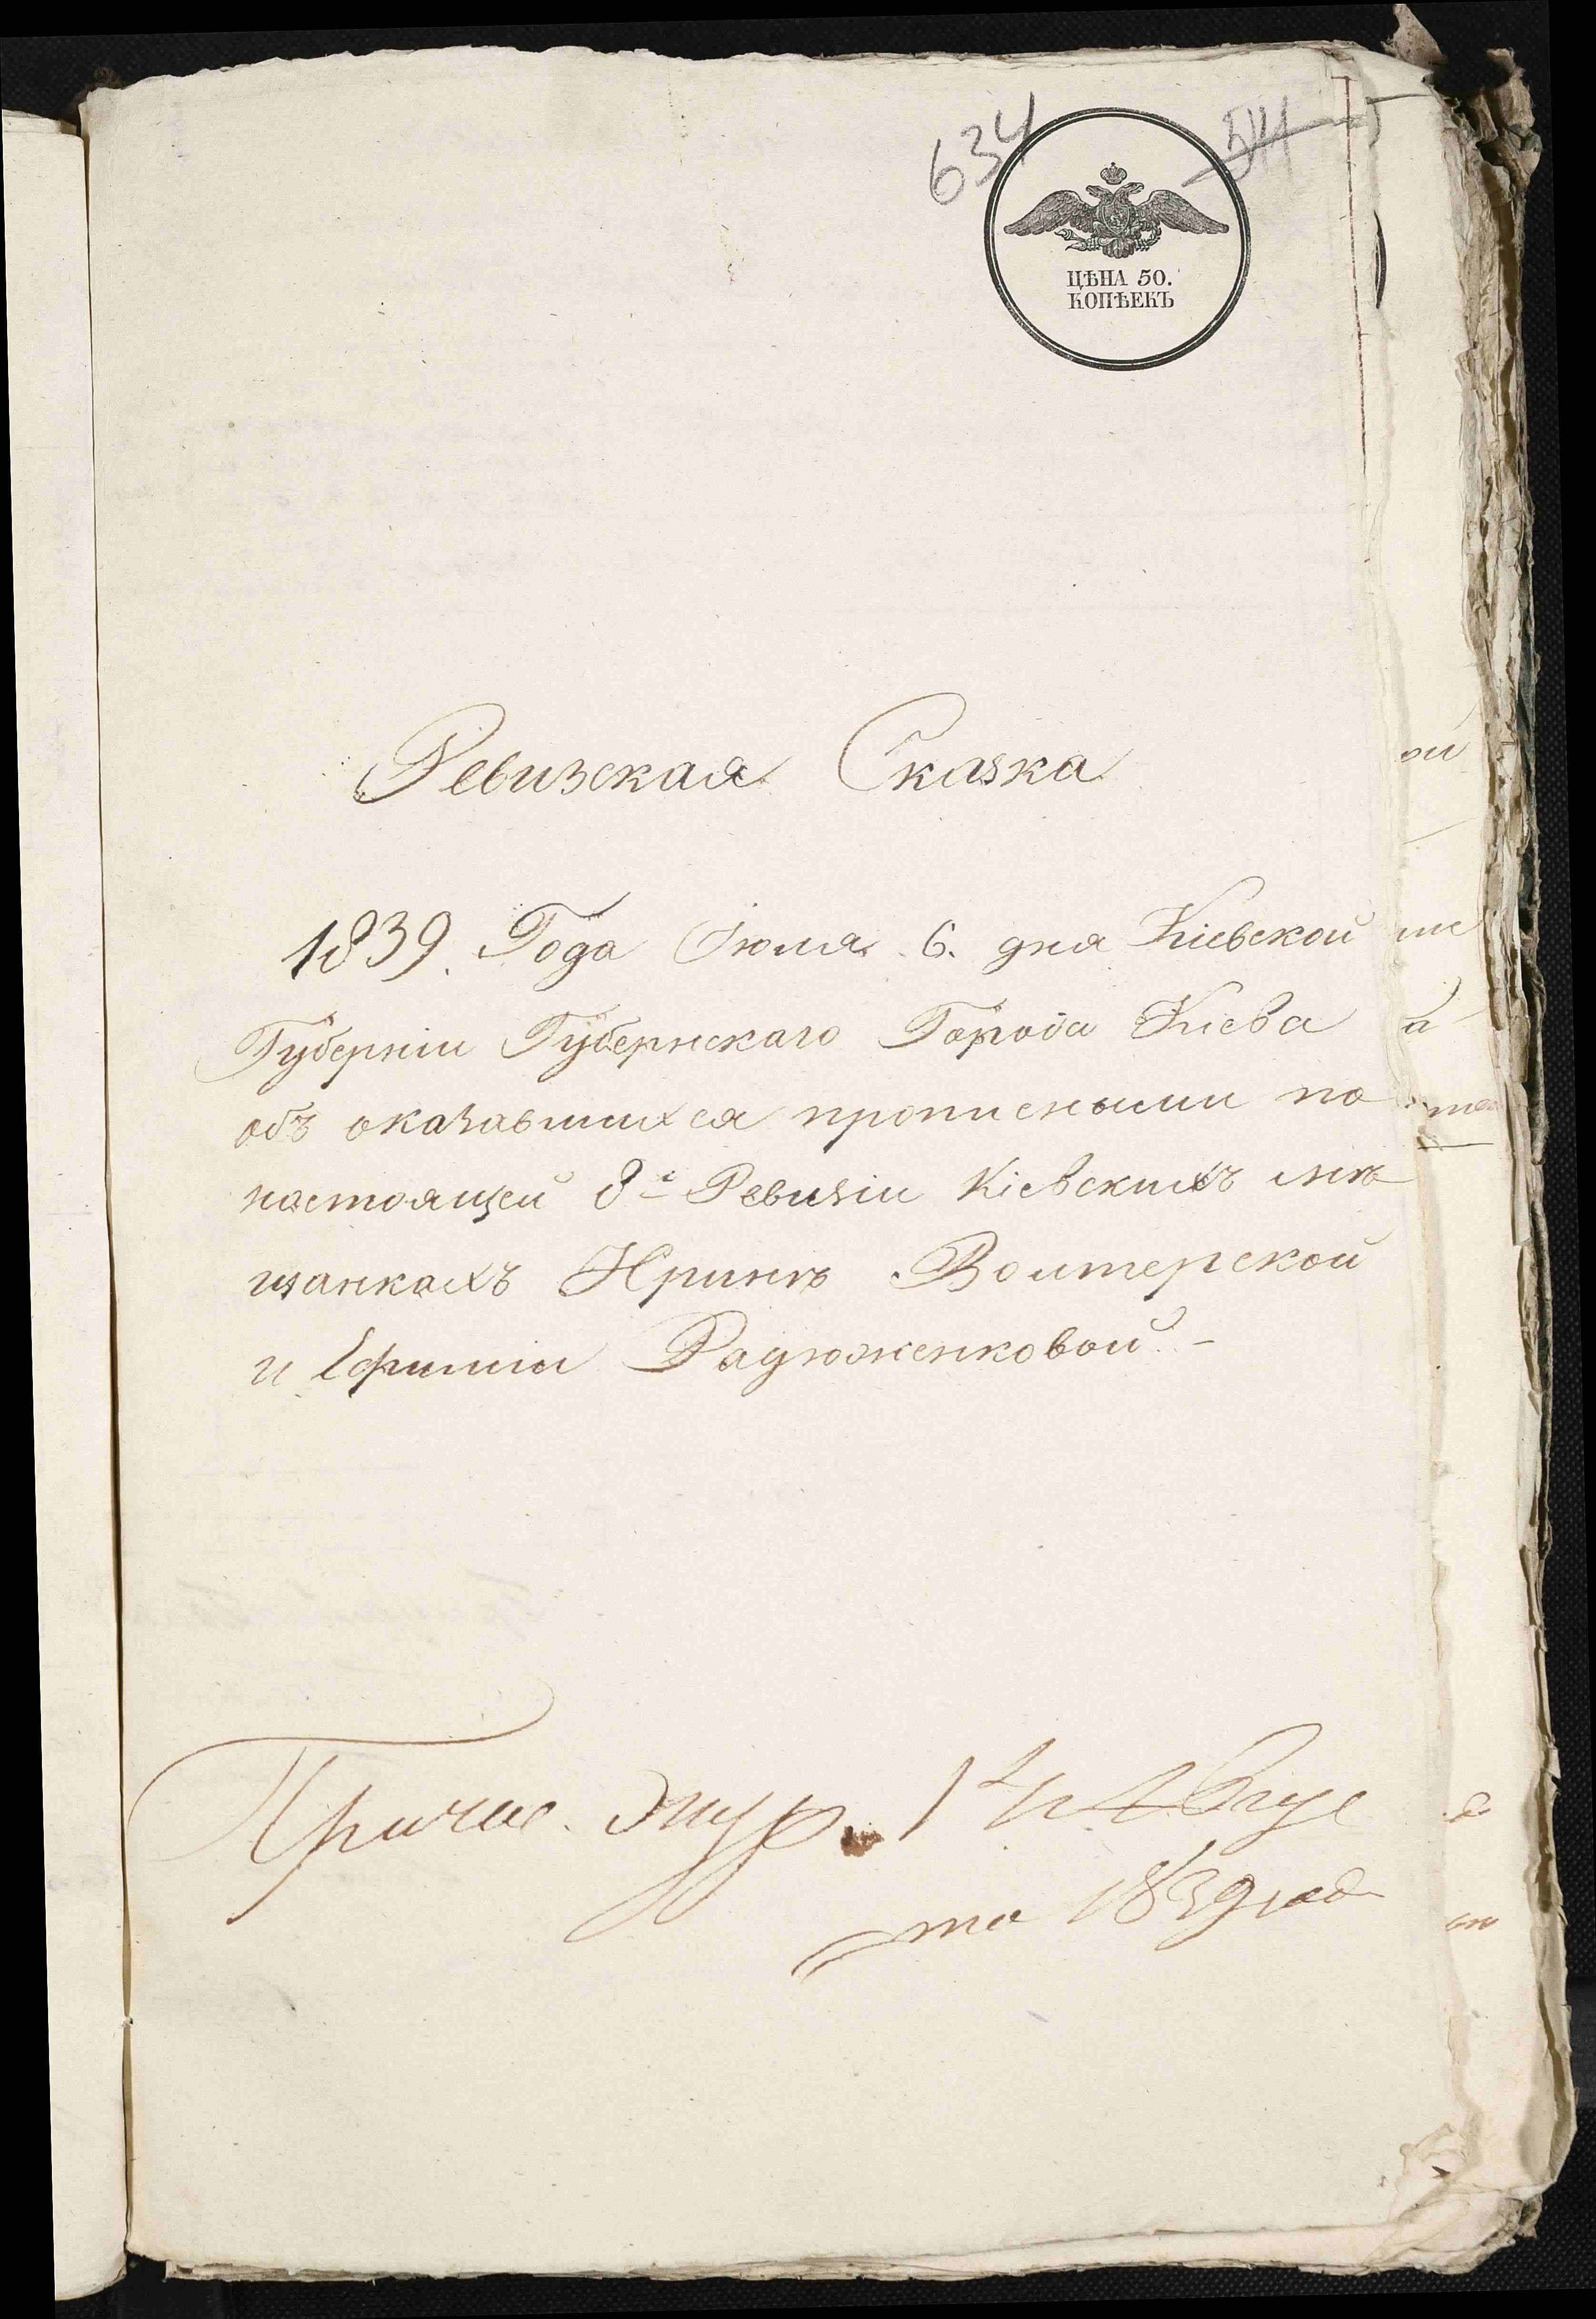 634
ЦѢНА 50.
КОПѢЕКЪ
Ревизская Сказка
1839. Года Іюля 6. дня Кіевской
Губерніи Губернскаго Города Кіева
объ оказавшихся прописными по
настоящей 8й Ревизіи Кіевскихъ мѣ
щанкахъ Иринѣ Волтерской
и Ефиміи Радюженковой
Авгус
та 1839 года